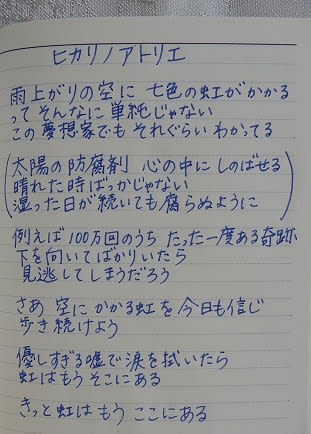 ヒカリノアトリエ
雨上がりの空に 七色の虹がかかる
ってそんなに単純じゃない
この夢想家でも それぐらい わかってる
(太陽の防腐剤 心の中に しのばせる
晴れた時ばっかじゃない
湿った日が続いても腐らぬように)
例えば100万回のうち たった一度ある奇跡
下を向いてばかりいたら
見逃してしまうだろう
さあ 空に かかる虹を 今日も信じ
歩き続けよう
優しすぎる嘘で涙を拭いたら
虹はもう そこにある
きっと虹は もう ここにある